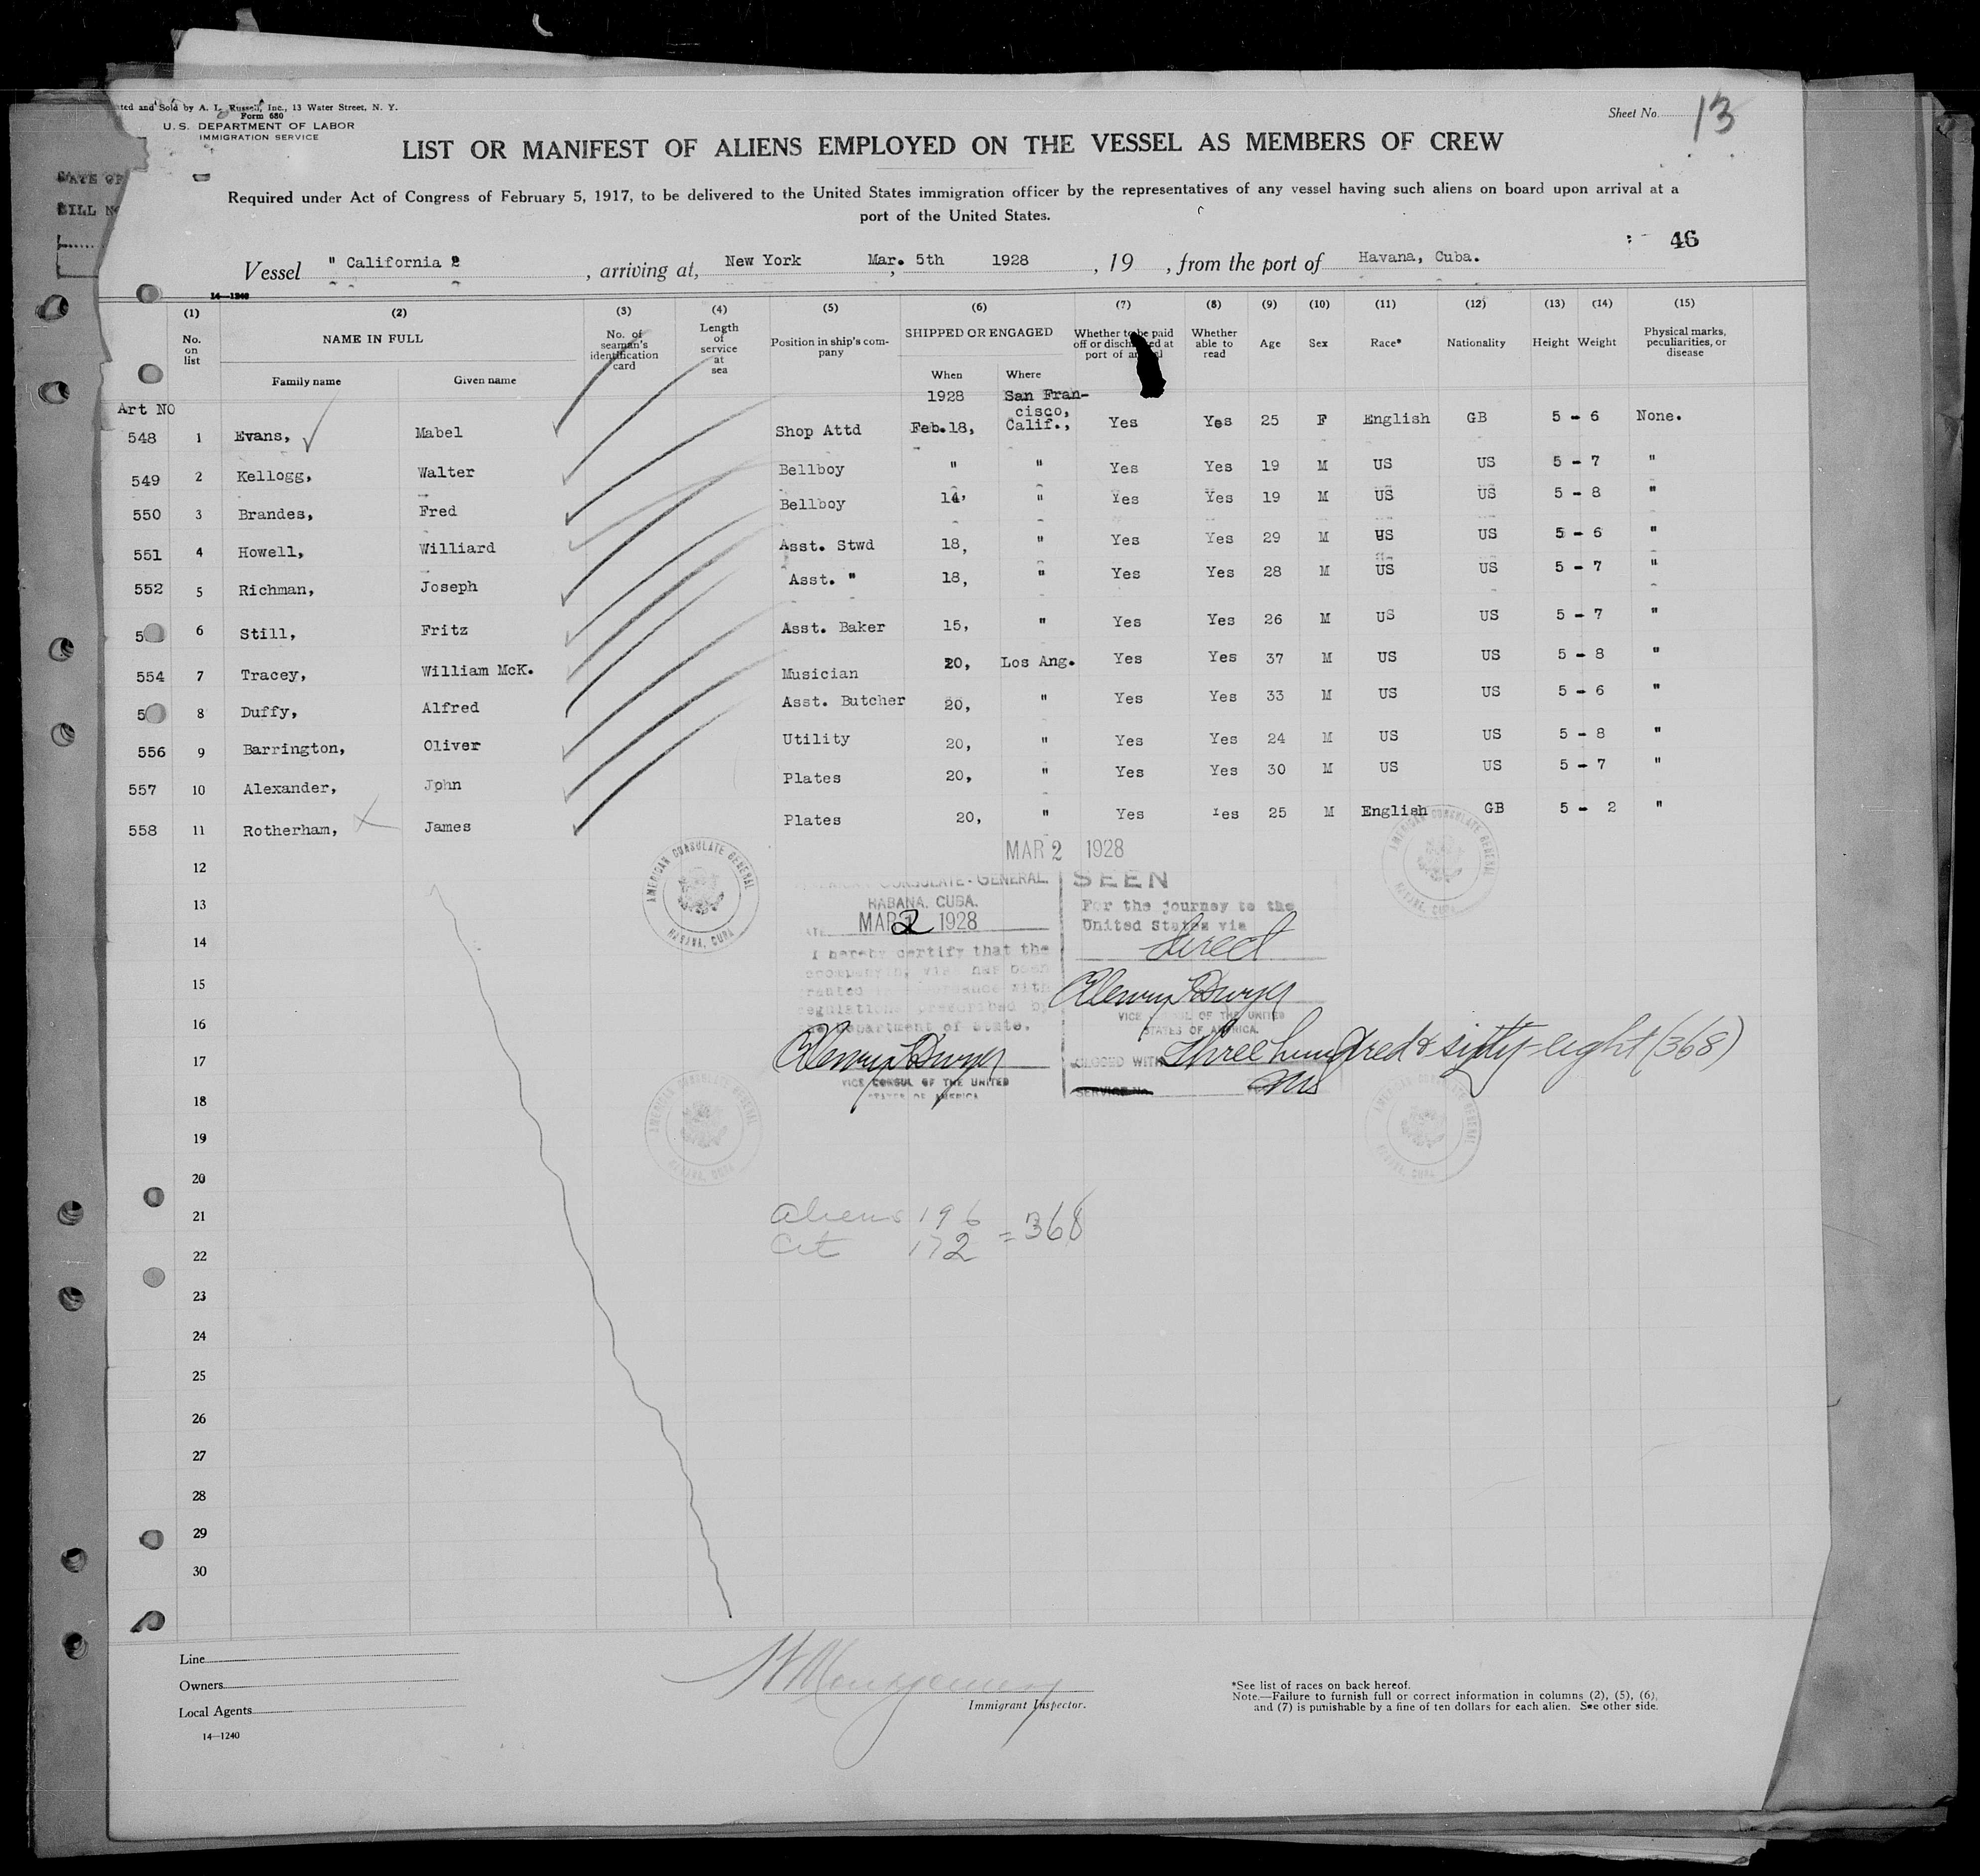 ted and Sold by A. L. Russell, Inc., 13 Water Street, N. Y.
Form 680
U. S. DEPARTMENT OF LABOR
IMMIGRATION SERVICE
Sheet No. 13
LIST OR MANIFEST OF ALIENS EMPLOYED ON THE VESSEL AS MEMBERS OF CREW
Required under Act of Congress of February 5, 1917, to be delivered to the United States immigration officer by the representatives of any vessel having such aliens on board upon arrival at a
port of the United States.
46
Vessel " California 2 , arriving at, New York Mar. 5th 1928 , 19 , from the port of Havana, Cuba.
14—1240
(1) (2) (3) (4) (5) (6) (7) (8) (9) (10) (11) (12) (13) (14) (15)
No. on list NAME IN FULL No. of seaman's identification card Length of service at sea Position in ship's company SHIPPED OR ENGAGED Whether to be paid off or discharged at port of arrival Whether able to read Age Sex Race* Nationality Height Weight Physical marks, peculiarities, or disease
Family name Given name When Where
Art NO 1928 San Fran-
cisco,
548 1 Evans, Mabel Shop Attd Feb.18, Calif., Yes Yes 25 F English GB 5 - 6 None.
549 2 Kellogg, Walter Bellboy " " Yes Yes 19 M US US 5 - 7 "
550 3 Brandes, Fred Bellboy 14, " Yes Yes 19 M US US 5 - 8 "
551 4 Howell, Williard Asst. Stwd 18, " Yes Yes 29 M US US 5 - 6 "
552 5 Richman, Joseph Asst. " 18, " Yes Yes 28 M US US 5 - 7 "
5 6 Still, Fritz Asst. Baker 15, " Yes Yes 26 M US US 5 - 7 "
554 7 Tracey, William McK. Musician 20, Los Ang. Yes Yes 37 M US US 5 - 8 "
5 8 Duffy, Alfred Asst. Butcher 20, " Yes Yes 33 M US US 5 - 6 "
556 9 Barrington, Oliver Utility 20, " Yes Yes 24 M US US 5 - 8 "
557 10 Alexander, John Plates 20, " Yes Yes 30 M US US 5 - 7 "
558 11 Rotherham, James Plates 20, " Yes Yes 25 M English GB 5 - 2 "
12
13
14
15
16
17
18
19
20
21
22
23
24
25
26
27
28
29
30
AMERICAN CONSULATE GENERAL
HABANA, CUBA
MAR 2 1928
CONSULATE-GENERAL.
HABANA, CUBA.
MAR 2 1928
I hereby certify that the
accompanying visa has been
granted in accordance with
regulations prescribed by
the Department of State.
VICE CONSUL OF THE UNITED
STATES OF AMERICA
SEEN
For the journey to the
United States via
direct
VICE CONSUL OF THE UNITED
STATES OF AMERICA.
Three hundred & sixty-eight (368)
SERVICE No.
Aliens 196
Cit 172 = 368
Line
Owners
Local Agents
14—1240
Immigrant Inspector.
*See list of races on back hereof.
Note.—Failure to furnish full or correct information in columns (2), (5), (6),
and (7) is punishable by a fine of ten dollars for each alien. See other side.